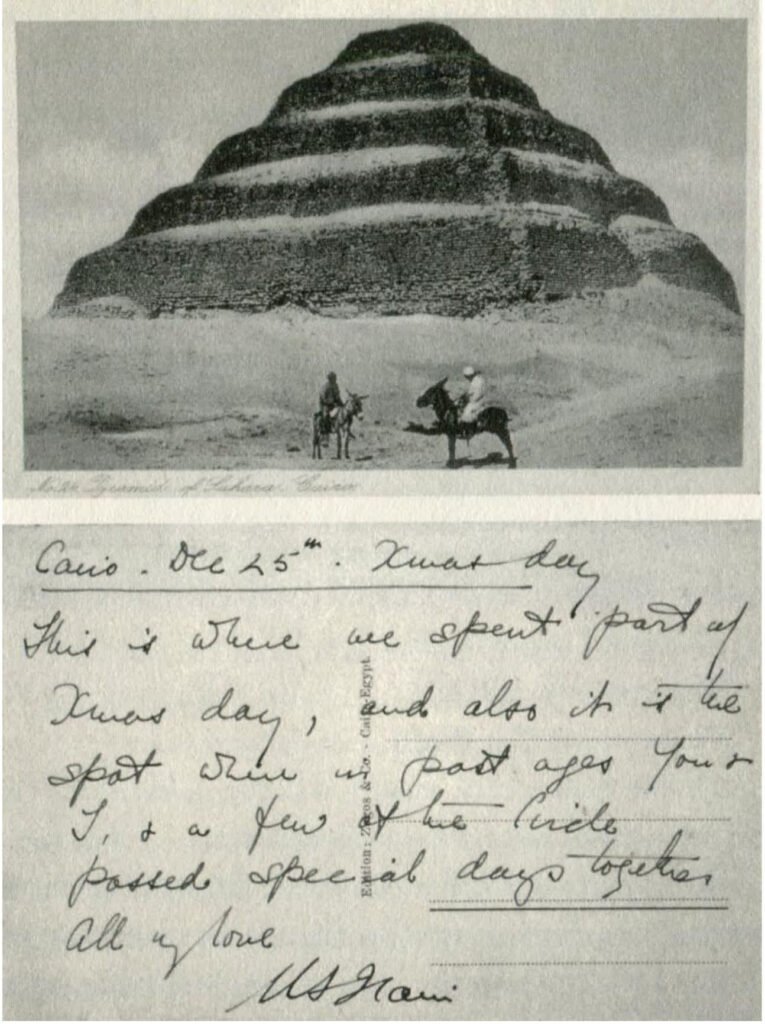 No. 24 Pyramid of Sahara. Cairo
Cairo. Dec 25th. Xmas day
This is where we spent part of
Xmas day, and also it is the
spot where in past ages You &
I, & a few of the Circle
passed special days together
All my love
Edition: & Co. - Cairo-Egypt.